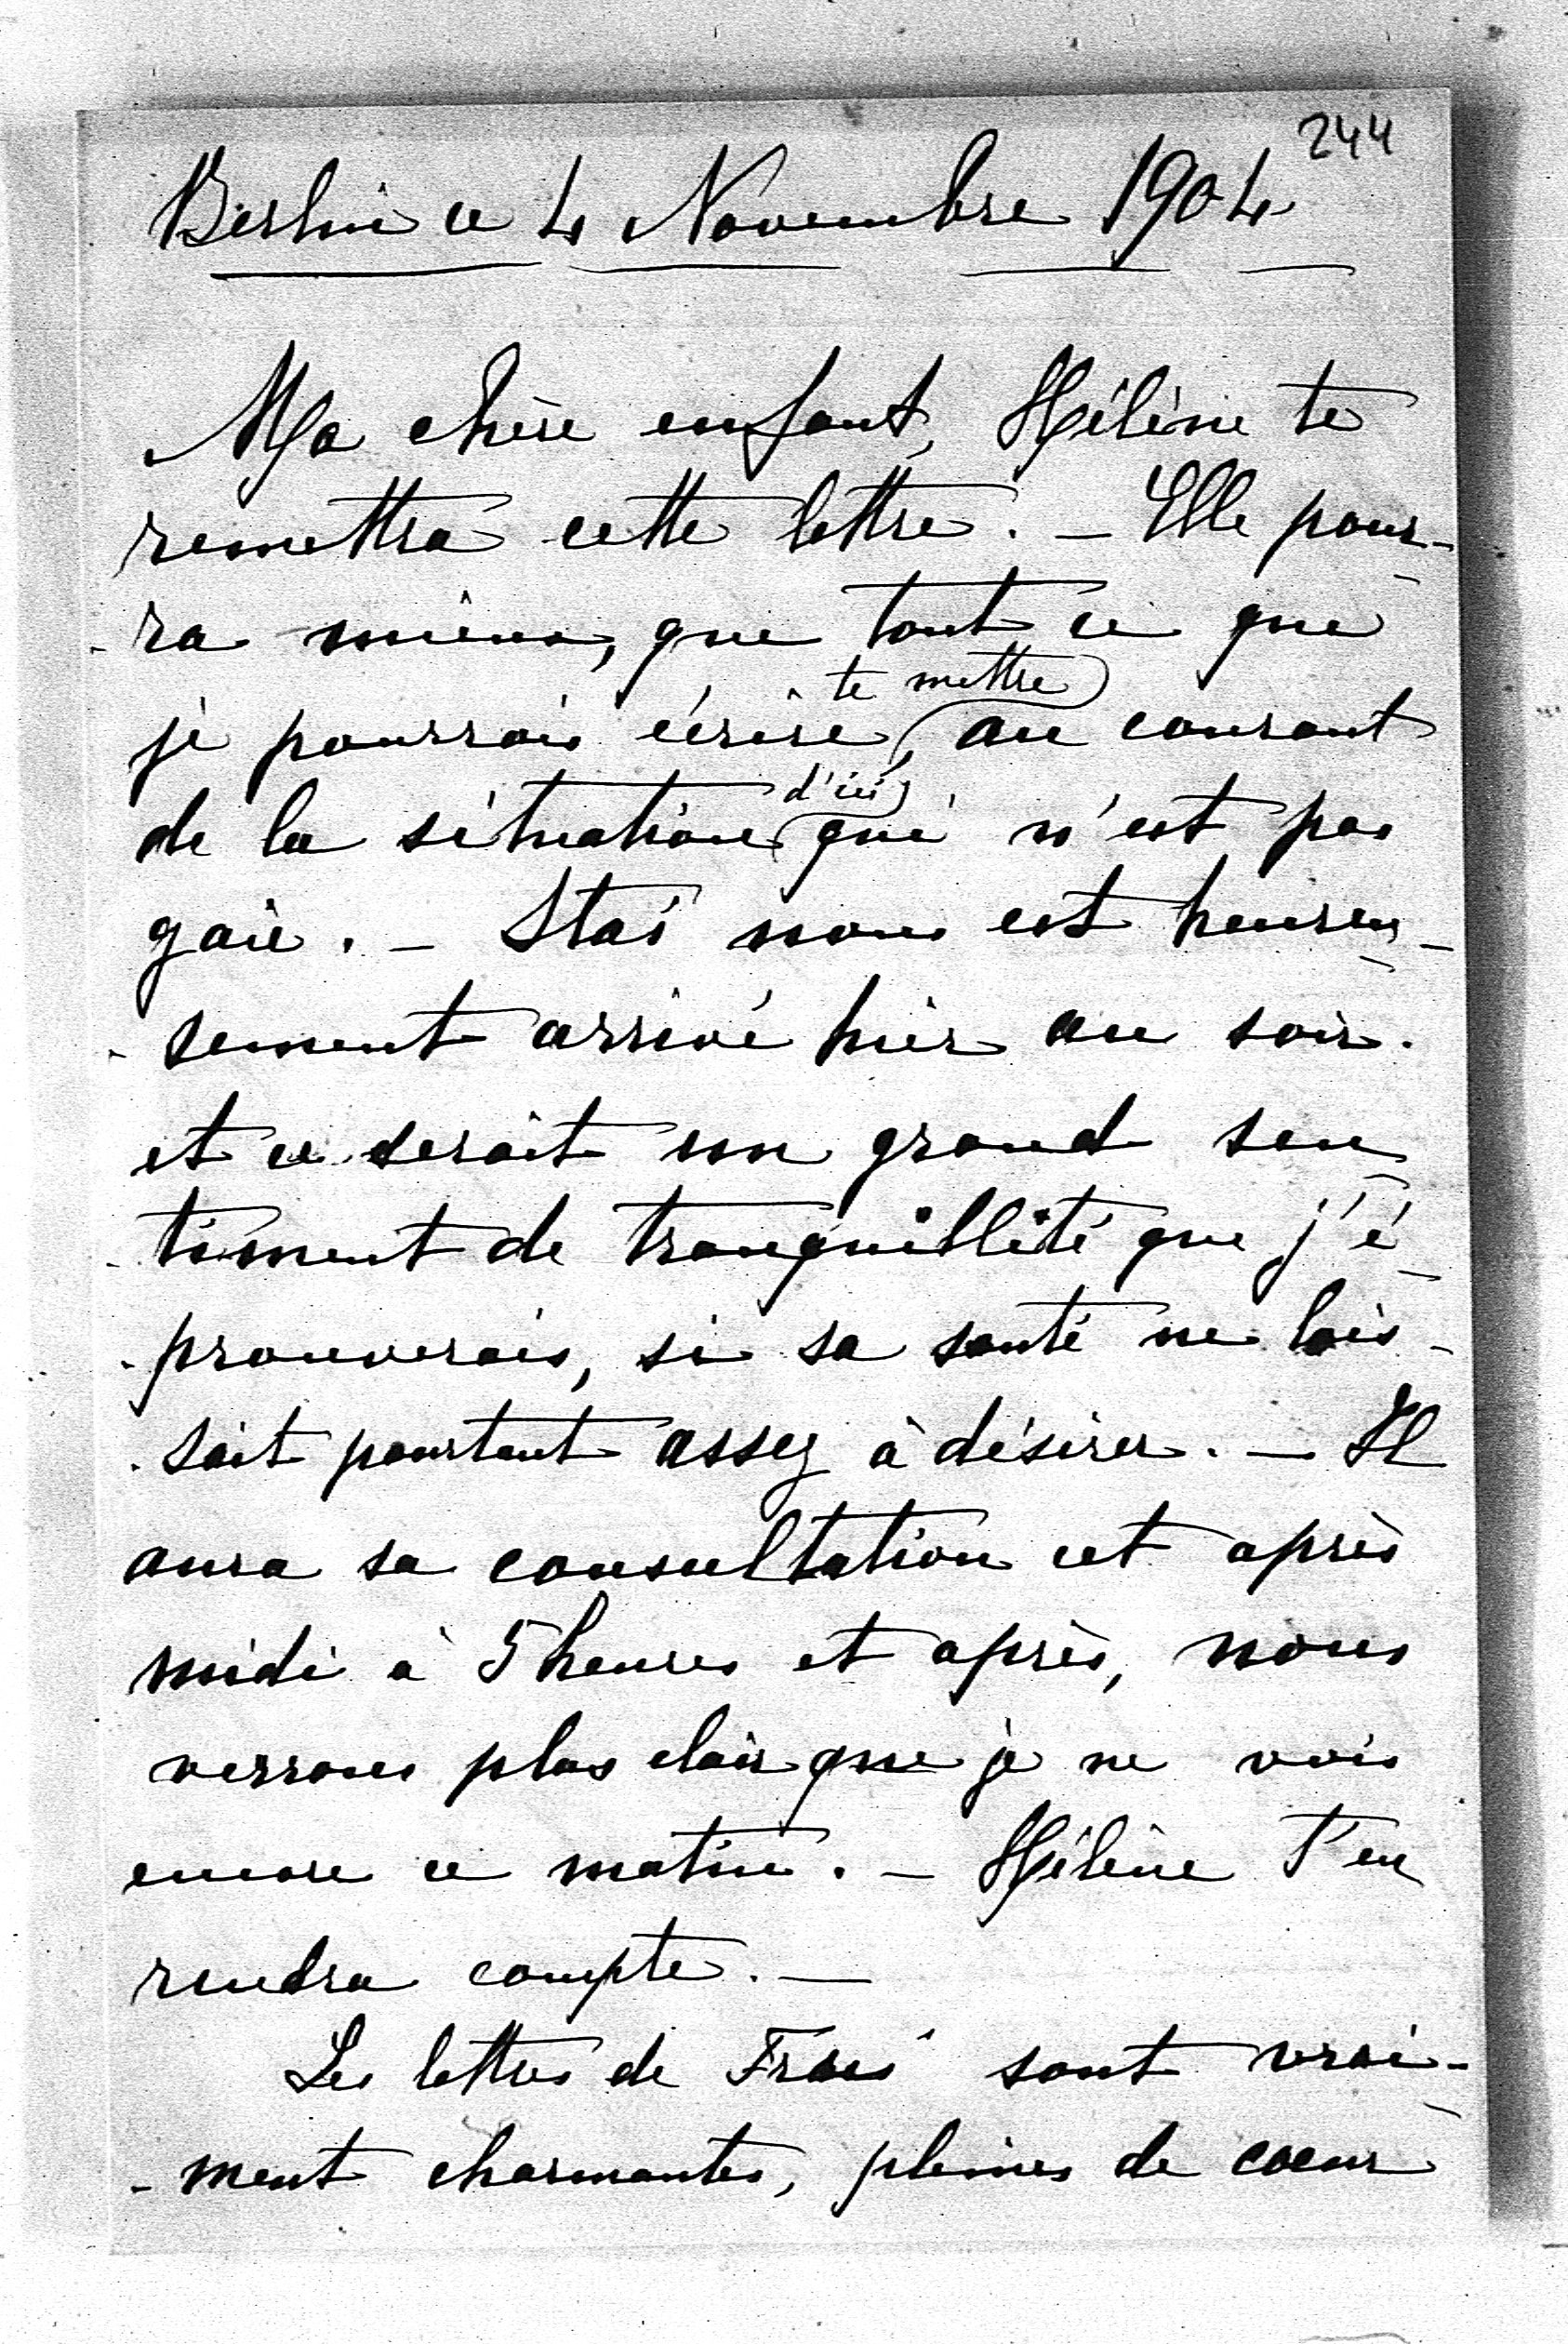 244
Berlin ce 4 Novembre 1904
Ma chère enfant, Hélène te
remettra cette lettre. – Elle pour-
-ra mieux, que tout ce que
je pourrais écrire, te mettre au courant
de la situation d'ici qui n'est pas
gaie. – Stas nous est heureu-
-sement arrivé hier au soir.
et ce serait un grand sen-
-timent de tranquillité que j'é-
-prouverais, si sa santé ne lais-
-sait pourtant assez à désirer. – Il
aura sa consultation cet après
midi à 5 heures et après, nous
verrons plus clair que je ne vois
encore ce matin. – Hélène t'en
rendra compte. –
Les lettres de sont vrai-
-ment charmantes, pleines de coeur